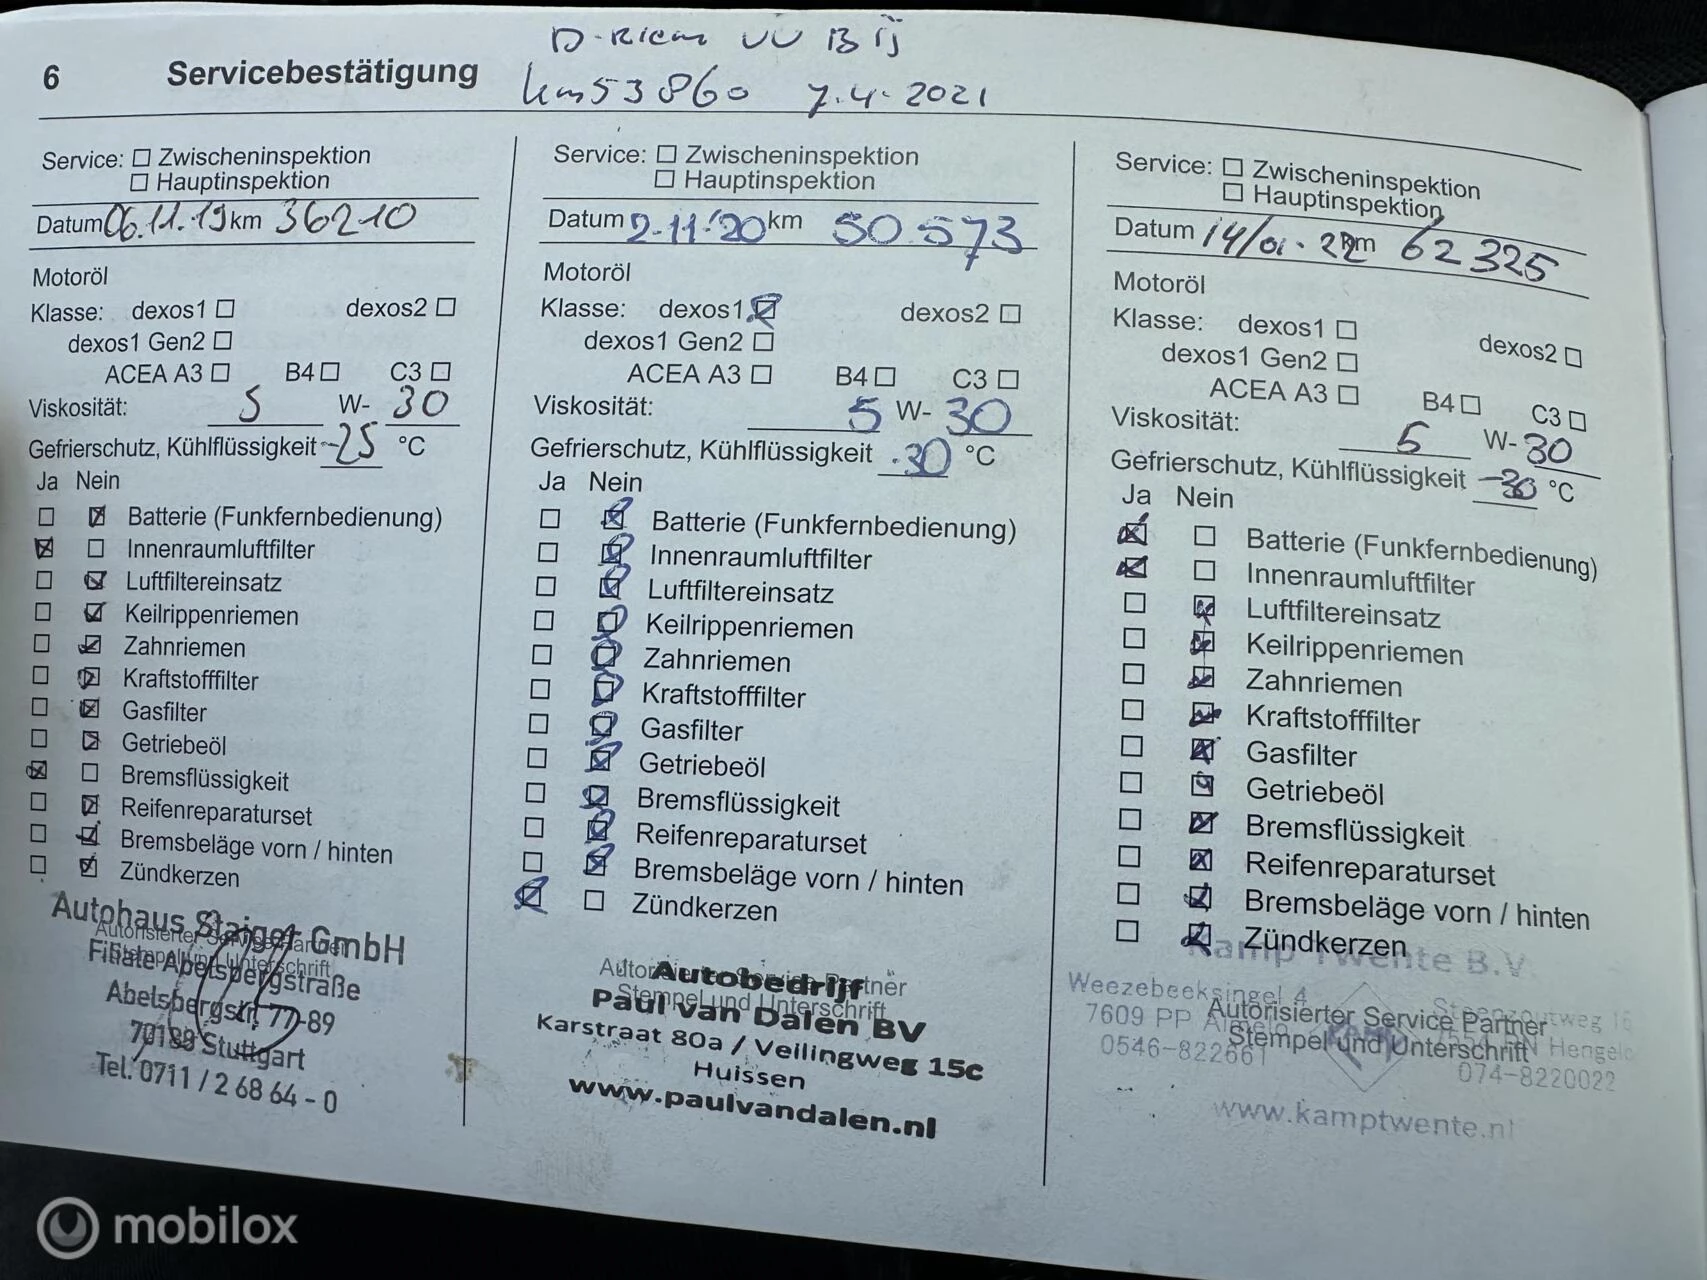 D-Riem VV Bij
6 Servicebestätigung km 53860 7.4.2021
Service: Zwischeninspektion
Hauptinspektion
Datum 06.11.19 km 36210
Motoröl
Klasse: dexos1 dexos2
dexos1 Gen2
ACEA A3 B4 C3
Viskosität: 5 W- 30
Gefrierschutz, Kühlflüssigkeit -25 °C
Ja Nein
Batterie (Funkfernbedienung)
Innenraumluftfilter
Luftfiltereinsatz
Keilrippenriemen
Zahnriemen
Kraftstofffilter
Gasfilter
Getriebeöl
Bremsflüssigkeit
Reifenreparaturset
Bremsbeläge vorn / hinten
Zündkerzen
Autohaus Staiger GmbH
Autorisierter Service Partner
Filiale Abelsbergstraße
Stempel und Unterschrift
Abelsbergstr. 77-89
70188 Stuttgart
Tel. 0711 / 2 68 64 - 0
Service: Zwischeninspektion
Hauptinspektion
Datum 2-11-'20 km 50.573
Motoröl
Klasse: dexos1 dexos2
dexos1 Gen2
ACEA A3 B4 C3
Viskosität: 5 W- 30
Gefrierschutz, Kühlflüssigkeit -30 °C
Ja Nein
Batterie (Funkfernbedienung)
Innenraumluftfilter
Luftfiltereinsatz
Keilrippenriemen
Zahnriemen
Kraftstofffilter
Gasfilter
Getriebeöl
Bremsflüssigkeit
Reifenreparaturset
Bremsbeläge vorn / hinten
Zündkerzen
Autorisierter Service Partner
Autobedrijf
Stempel und Unterschrift
Paul van Dalen BV
Karstraat 80a / Veilingweg 15c
Huissen
www.paulvandalen.nl
Service: Zwischeninspektion
Hauptinspektion
Datum 14/01-22 km 62325
Motoröl
Klasse: dexos1 dexos2
dexos1 Gen2
ACEA A3 B4 C3
Viskosität: 5 W- 30
Gefrierschutz, Kühlflüssigkeit -30 °C
Ja Nein
Batterie (Funkfernbedienung)
Innenraumluftfilter
Luftfiltereinsatz
Keilrippenriemen
Zahnriemen
Kraftstofffilter
Gasfilter
Getriebeöl
Bremsflüssigkeit
Reifenreparaturset
Bremsbeläge vorn / hinten
Zündkerzen
Kamp Twente B.V.
Weezebeeksingel 4
Autorisierter Service Partner
7609 PP Almelo
Stempel und Unterschrift
0546-822661
Hengelo
074-8220022
www.kamptwente.nl
mobilox